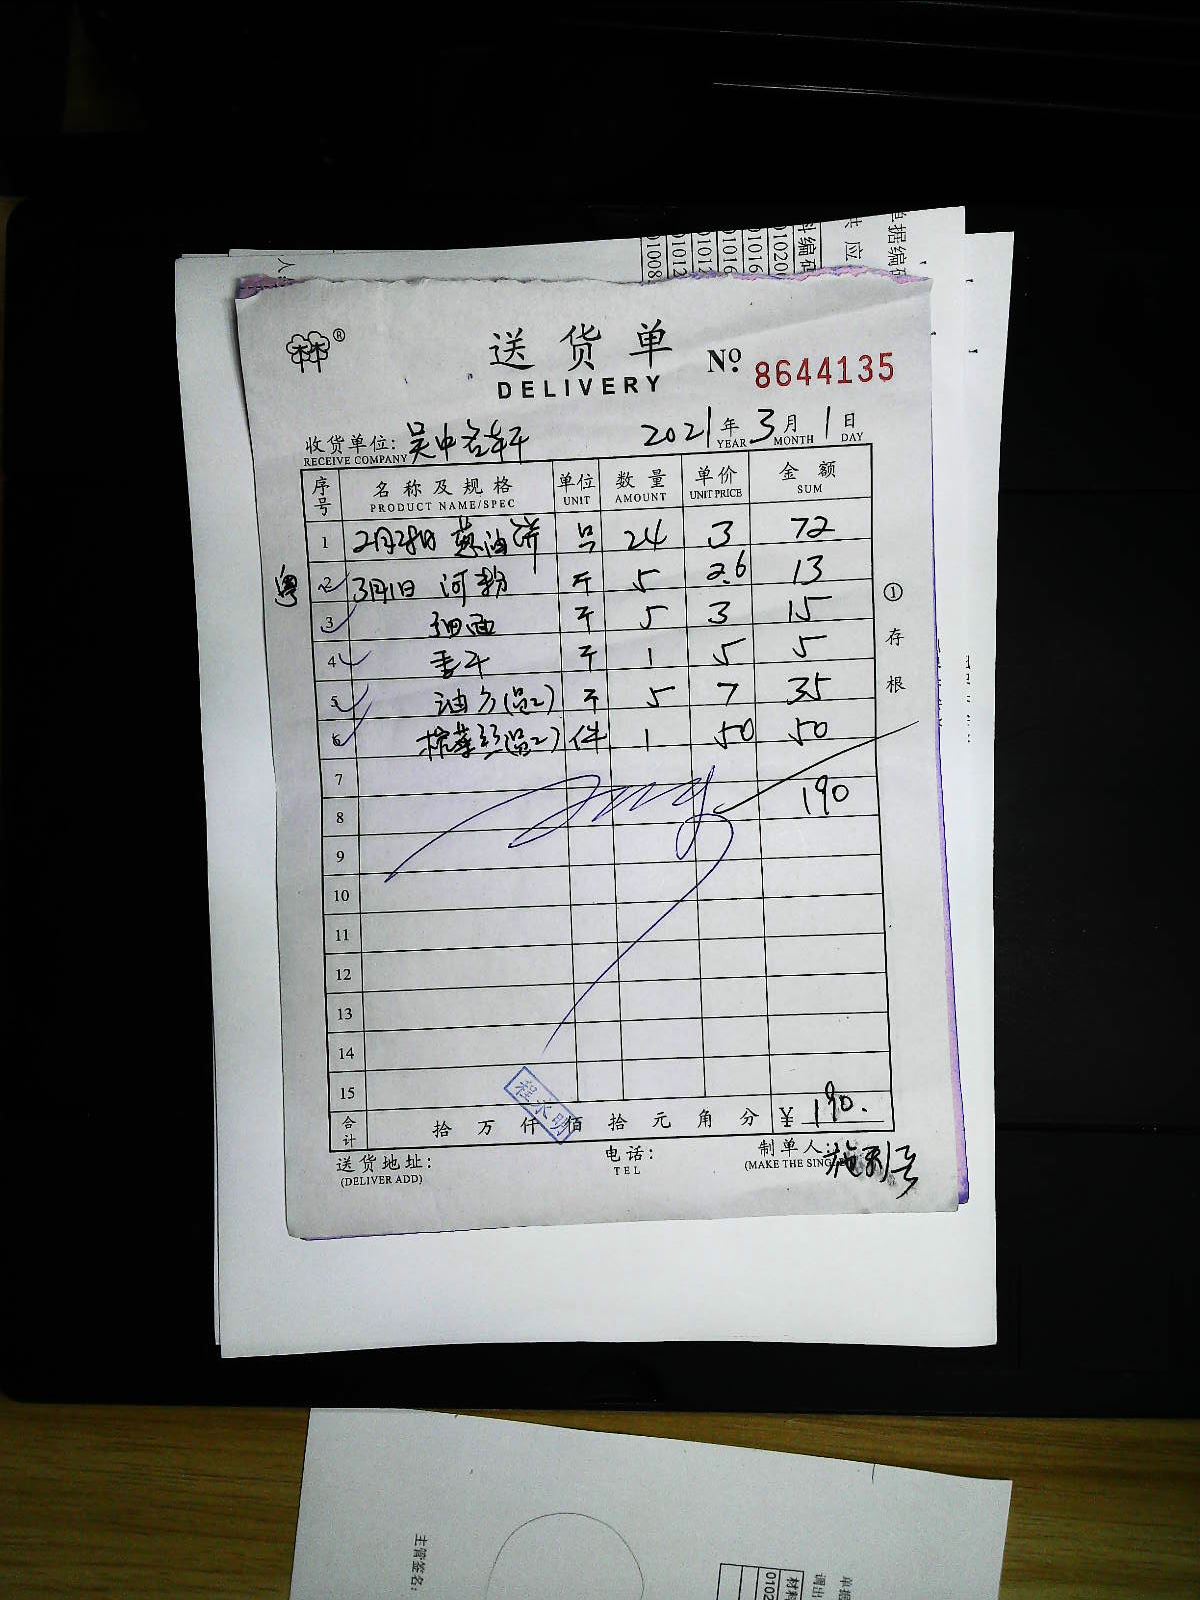 单据编码
供应
料编码
01020
01016
01016
01012
01008
林 ®
送货单
DELIVERY
№ 8644135
收货单位: 吴中名轩 2021年3月1日
RECEIVE COMPANY YEAR MONTH DAY
序号 名称及规格 单位 数量 单价 金额
PRODUCT NAME/SPEC UNIT AMOUNT UNIT PRICE SUM
1 2月28日 葱油饼 24 3 72
粤
2 3月1日 河粉 斤 5 2.6 13
3 细面 斤 5 3 15
4 斤 1 5 5
5 油 斤 5 7 35
6 榨菜丝 件 1 50 50
7
8 190
9
10
11
12
13
14
15
①存根
程永明
合计 拾万仟佰拾元角分 ¥ 190.
送货地址: 电话: 制单人:
(DELIVER ADD) TEL (MAKE THE SINGLE
主管签名:
单据
调出
材料
0102